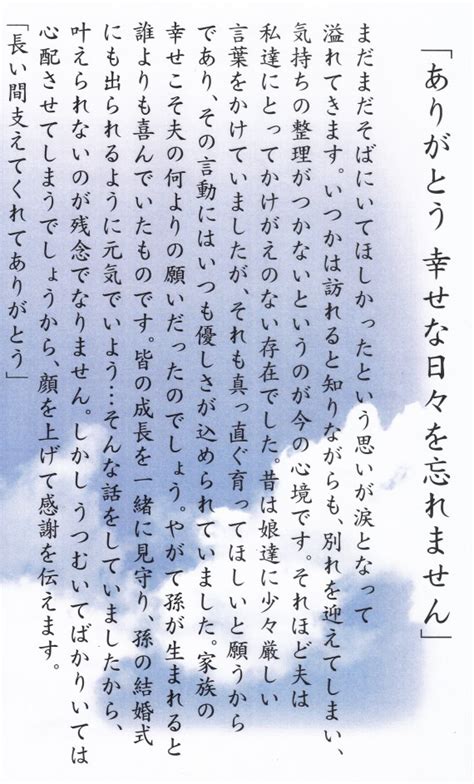 「ありがとう 幸せな日々を忘れません」
まだまだそばにいてほしかったという思いが涙となって
溢れてきます。いつかは訪れると知りながらも、別れを迎えてしまい、
気持ちの整理がつかないというのが今の心境です。それほど夫は
私達にとってかけがえのない存在でした。昔は娘達に少々厳しい
言葉をかけていましたが、それも真っ直ぐ育ってほしいと願うから
であり、その言動にはいつも優しさが込められていました。家族の
幸せこそ夫の何よりの願いだったのでしょう。やがて孫が生まれると
誰よりも喜んでいたものです。皆の成長を一緒に見守り、孫の結婚式
にも出られるように元気でいよう…そんな話をしていましたから、
叶えられないのが残念でなりません。しかしうつむいてばかりいては
心配させてしまうでしょうから、顔を上げて感謝を伝えます。
「長い間支えてくれてありがとう」